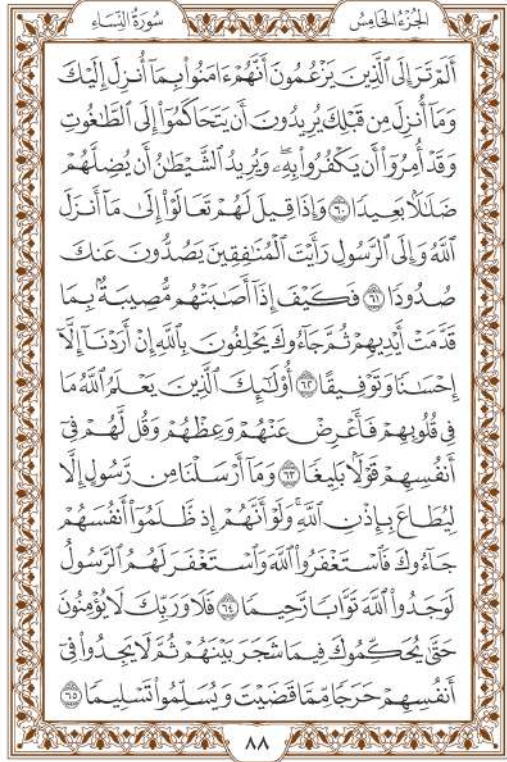 الجُزْءُ الخَامِسُ
سُورَةُ النِّسَاءِ
أَلَمْ تَرَ إِلَى ٱلَّذِينَ يَزْعُمُونَ أَنَّهُمْ ءَامَنُواْ بِمَآ أُنزِلَ إِلَيْكَ
وَمَآ أُنزِلَ مِن قَبْلِكَ يُرِيدُونَ أَن يَتَحَاكَمُوٓاْ إِلَى ٱلطَّٰغُوتِ
وَقَدْ أُمِرُوٓاْ أَن يَكْفُرُواْ بِهِۦۖ وَيُرِيدُ ٱلشَّيْطَٰنُ أَن يُضِلَّهُمْ
ضَلَٰلَۢا بَعِيدٗا ٦٠ وَإِذَا قِيلَ لَهُمْ تَعَالَوْاْ إِلَىٰ مَآ أَنزَلَ
ٱللَّهُ وَإِلَى ٱلرَّسُولِ رَأَيْتَ ٱلْمُنَٰفِقِينَ يَصُدُّونَ عَنكَ
صُدُودٗا ٦١ فَكَيْفَ إِذَآ أَصَٰبَتْهُم مُّصِيبَةُۢ بِمَا
قَدَّمَتْ أَيْدِيهِمْ ثُمَّ جَآءُوكَ يَحْلِفُونَ بِٱللَّهِ إِنْ أَرَدْنَآ إِلَّآ
إِحْسَٰنٗا وَتَوْفِيقًا ٦٢ أُوْلَٰٓئِكَ ٱلَّذِينَ يَعْلَمُ ٱللَّهُ مَا
فِي قُلُوبِهِمْ فَأَعْرِضْ عَنْهُمْ وَعِظْهُمْ وَقُل لَّهُمْ فِيٓ
أَنفُسِهِمْ قَوْلَۢا بَلِيغٗا ٦٣ وَمَآ أَرْسَلْنَا مِن رَّسُولٍ إِلَّا
لِيُطَاعَ بِإِذْنِ ٱللَّهِۚ وَلَوْ أَنَّهُمْ إِذ ظَّلَمُوٓاْ أَنفُسَهُمْ
جَآءُوكَ فَٱسْتَغْفَرُواْ ٱللَّهَ وَٱسْتَغْفَرَ لَهُمُ ٱلرَّسُولُ
لَوَجَدُواْ ٱللَّهَ تَوَّابٗا رَّحِيمٗا ٦٤ فَلَا وَرَبِّكَ لَا يُؤْمِنُونَ
حَتَّىٰ يُحَكِّمُوكَ فِيمَا شَجَرَ بَيْنَهُمْ ثُمَّ لَا يَجِدُواْ فِيٓ
أَنفُسِهِمْ حَرَجٗا مِّمَّا قَضَيْتَ وَيُسَلِّمُواْ تَسْلِيمٗا ٦٥
٨٨